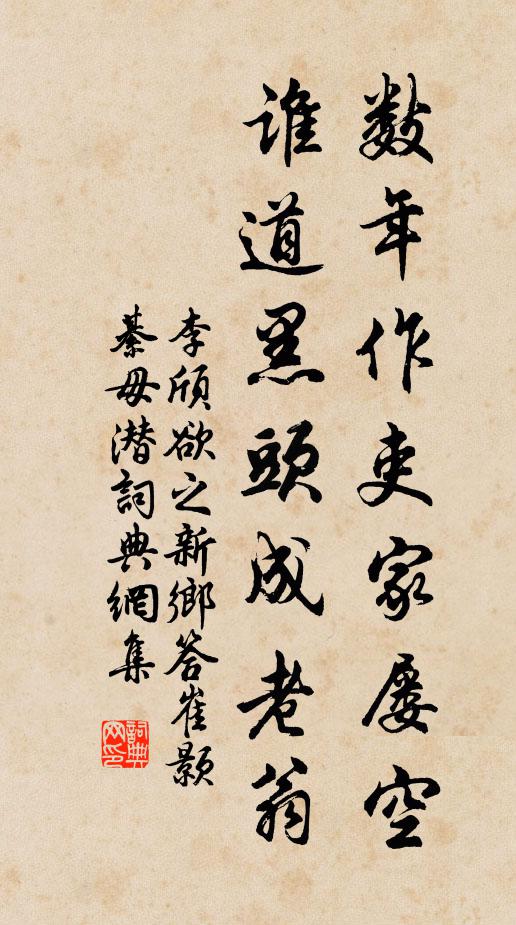 数年作吏家屡空
誰道黑頭成老翁
李頎欲之新鄉答崔顥
綦毋潛詞典網集
詞典網印